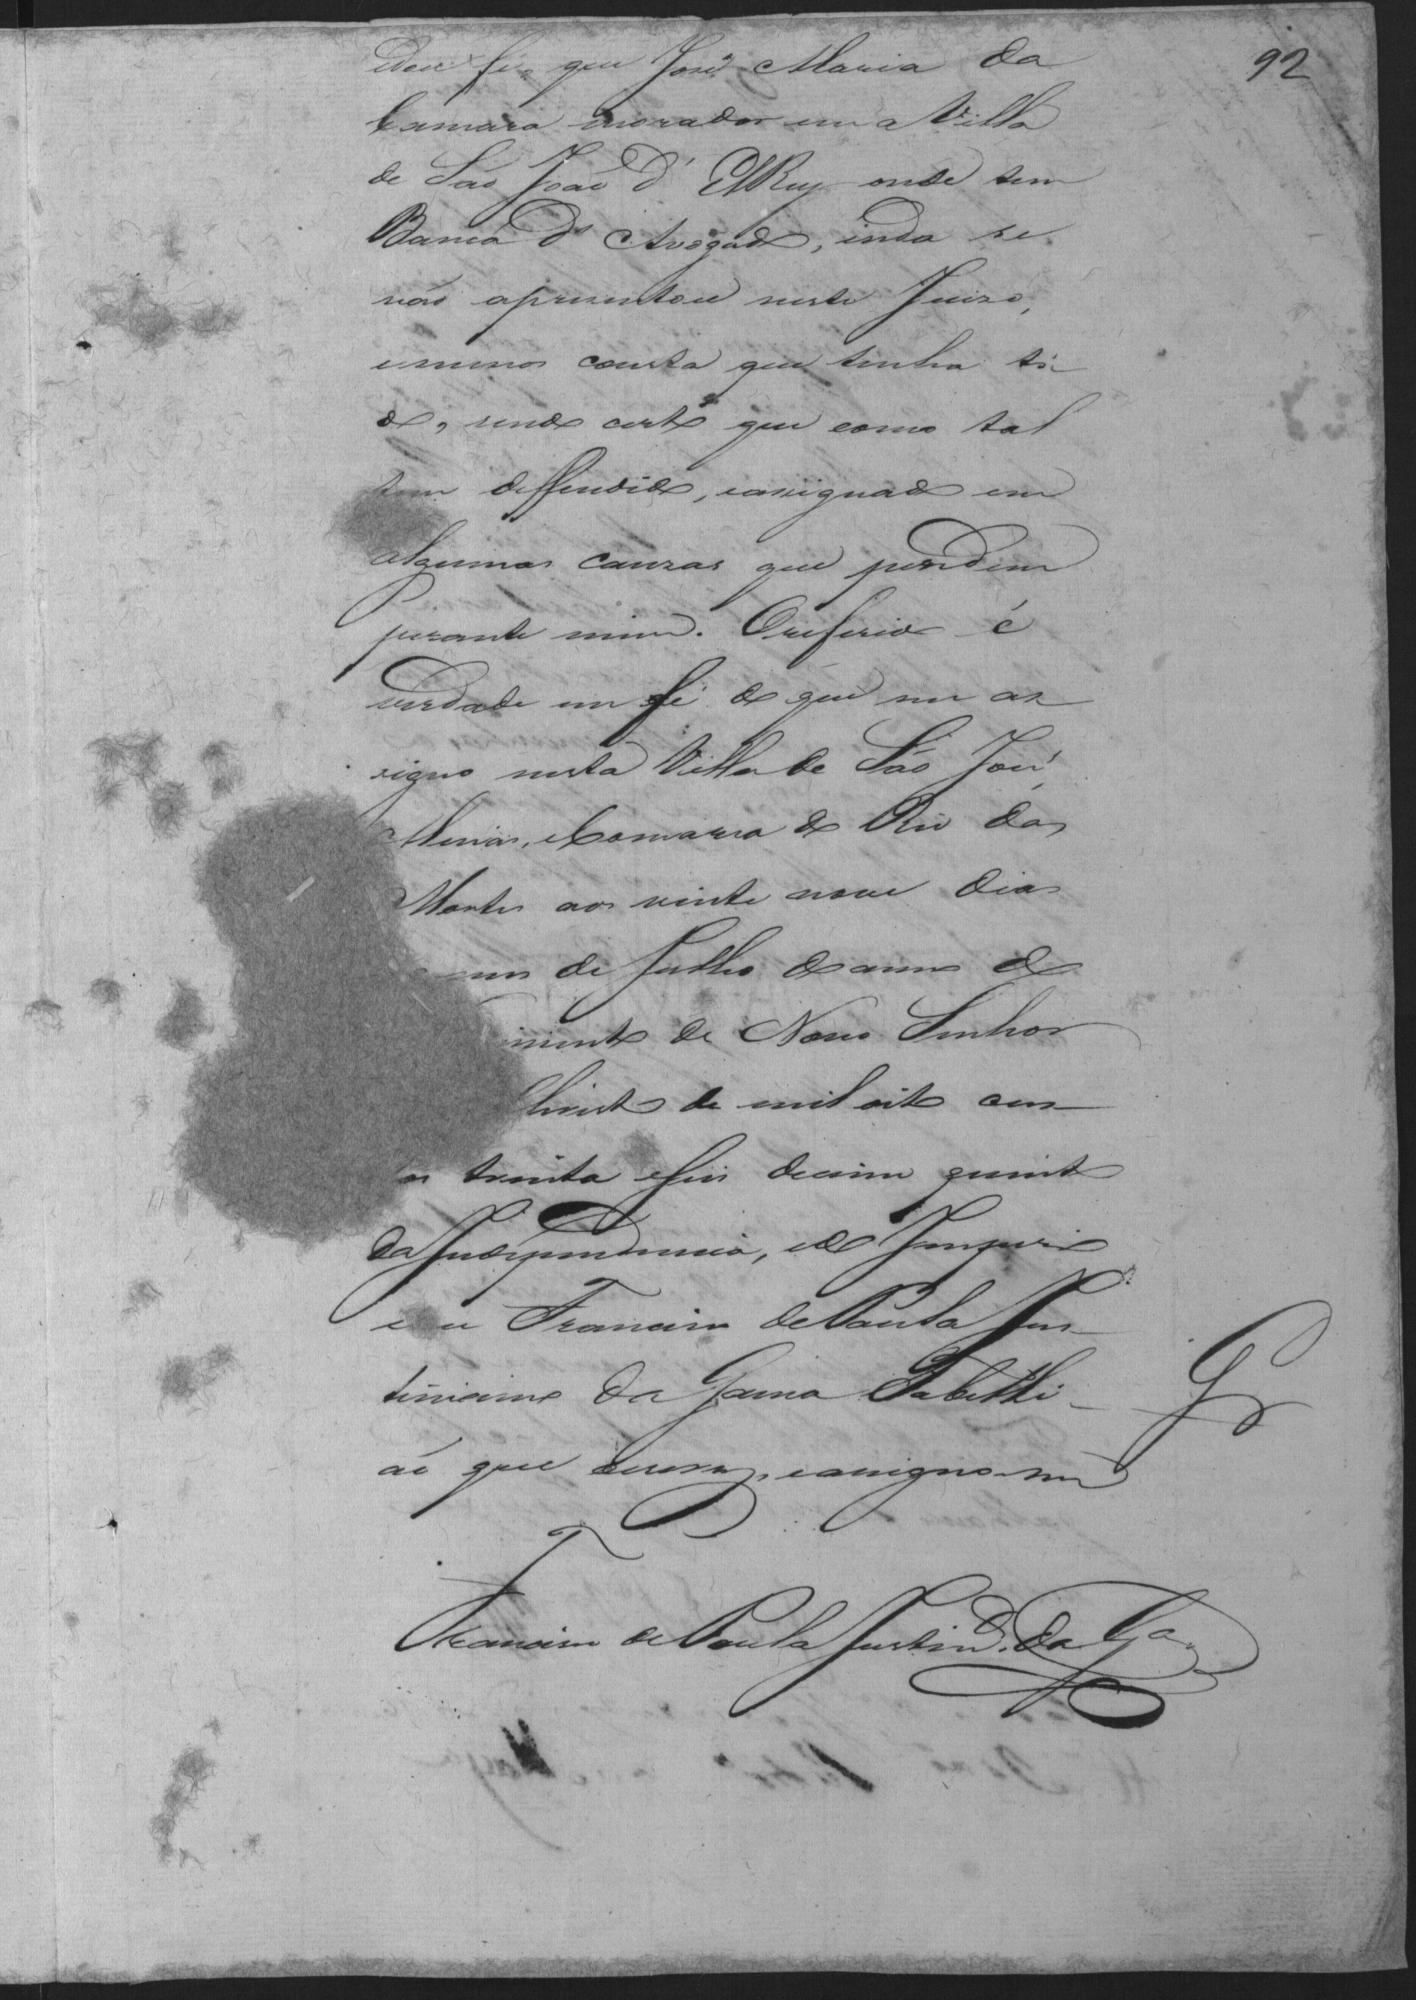 92
edou fé, que José Maria da
Camara morador em a Villa
de São João d' ElRey onde tem
Banca de Avogado, inda se
não aprezentou neste Juizo,
e menos consta que tenha si-
do, sendo certo que como tal
tem deffendido, e assignado em
algumas cauzas que pendem
perante mim. O referido é
verdade em fé do que me as-
signo nesta Villa de São José,
Minas, e Comarca do Rio das
Mortes aos vinte nove dias
de Julho do anno do
cimento de Nosso Senhor
Christo de mil oito cen-
tos trinta e seis decimo quinto
da Independencia, e do Imperio
e eu Francisco de Paula Jus-
tiniano da Gama Tabelli-
ão que escrevy, e assigno-me
Francisco de Paula Justin.º da Ga.